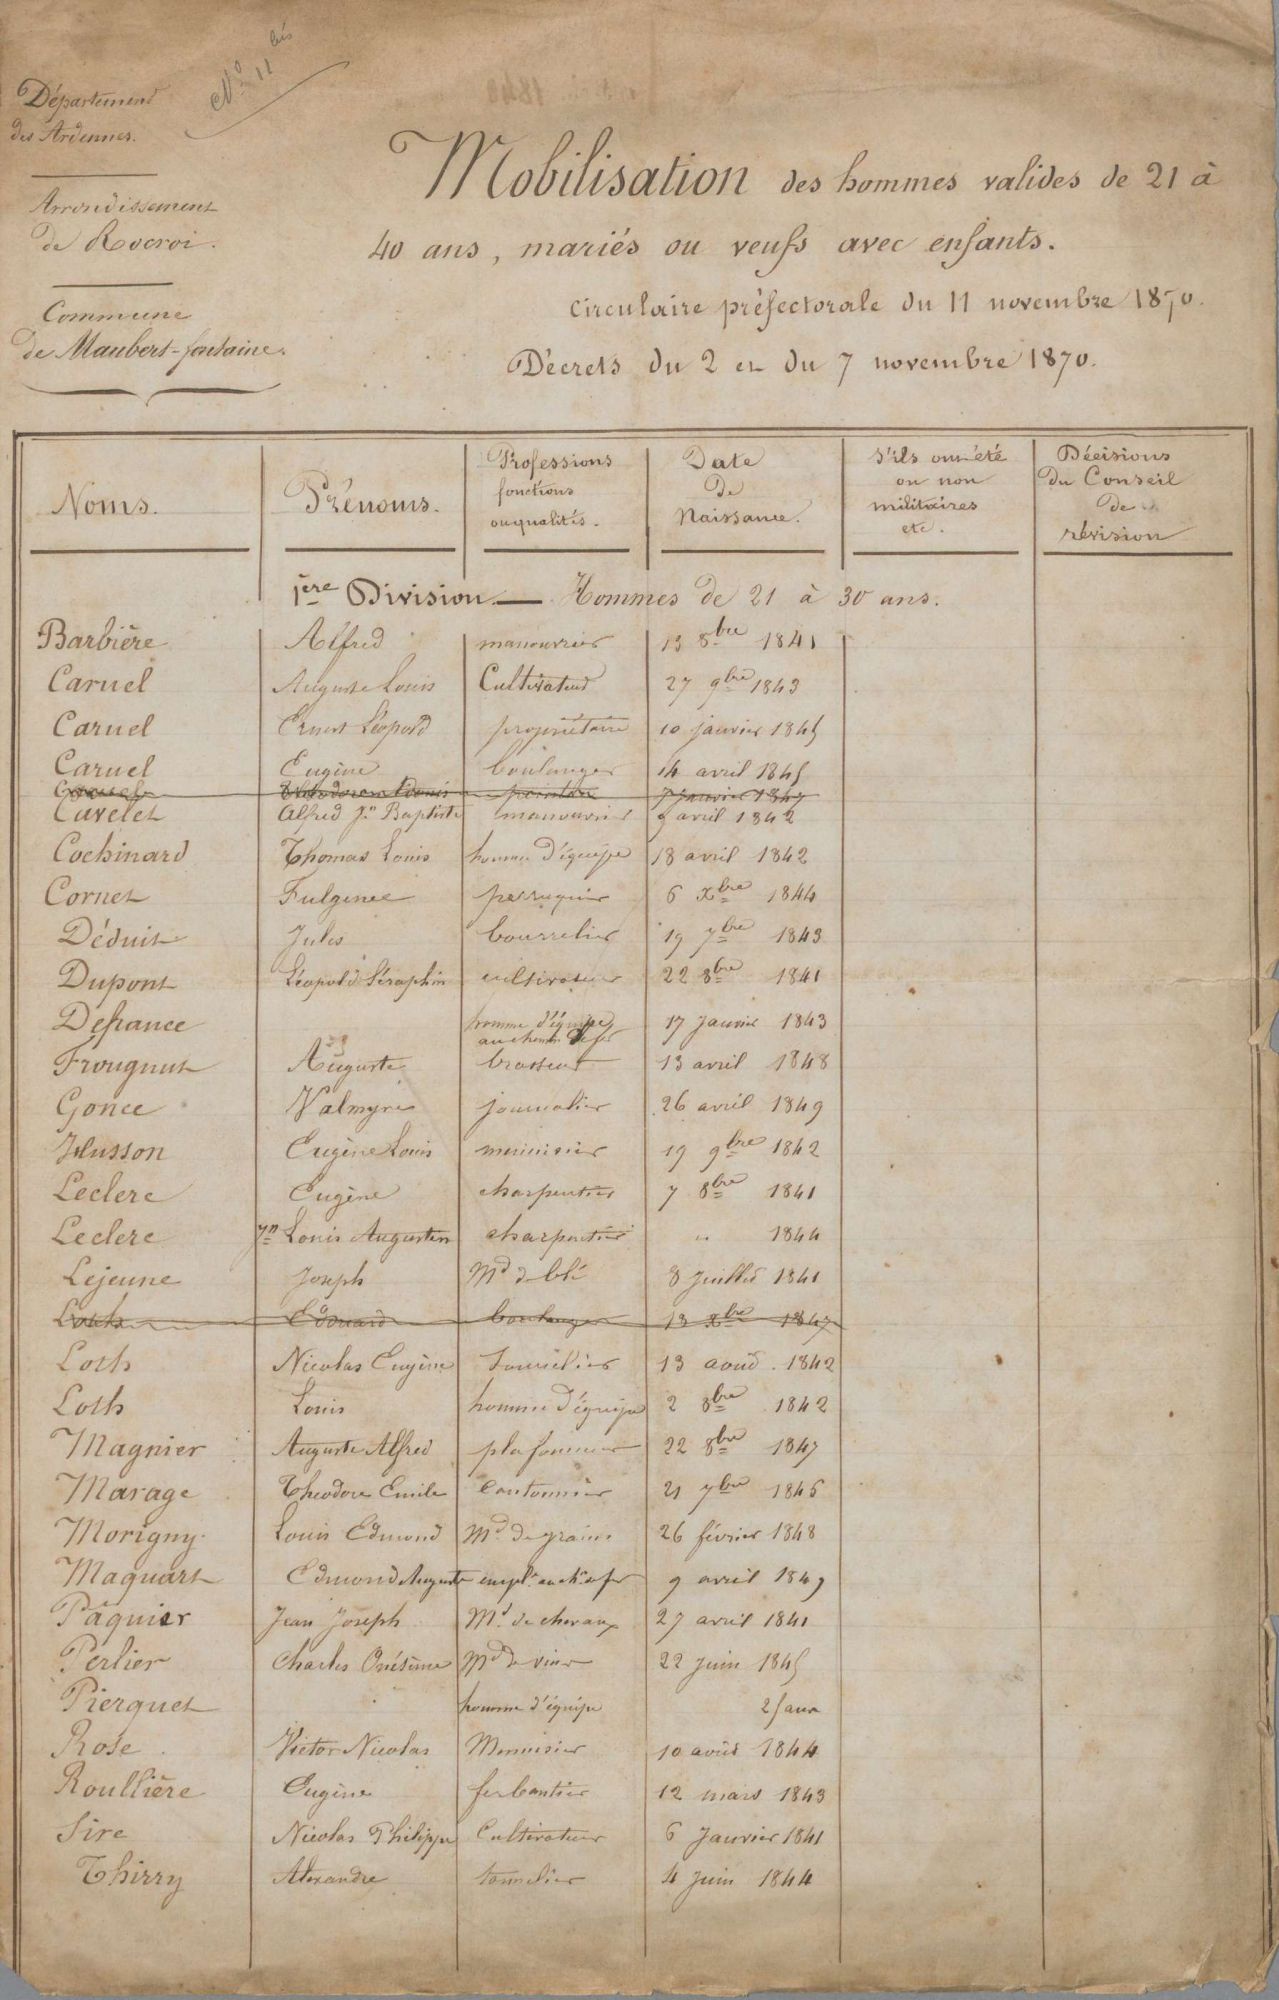 N° 11 bis
Département
des Ardennes.
Arrondissement
de Rocroi.
Commune
de Maubert-fontaine.
Mobilisation des hommes valides de 21 à
40 ans, mariés ou veufs avec enfants.
Circulaire préfectorale du 11 novembre 1870.
Décrets du 2 et du 7 novembre 1870.
Noms. Prénoms. Professions fonctions ou qualités. Date de Naissance. S'ils ont été ou non militaires etc. Décisions du Conseil de révision
1ère Division — Hommes de 21 à 30 ans.
Barbière Alfred manouvrier 13 8bre 1841
Caruel Auguste Louis Cultivateur 27 9bre 1843
Caruel Ernest Léopold propriétaire 10 janvier 1845
Caruel Eugène boulanger 14 avril 1845
7 janvier 1847
Cavelet Alfred Jn Baptiste manouvrier 9 avril 1842
Cochinard Thomas Louis homme d'équipe 18 avril 1842
Cornet Fulgence perruquier 6 Xbre 1844
Déduit Jules bourrelier 19 7bre 1843
Dupont Léopold Séraphin cultivateur 22 8bre 1841
Defrance homme d'équipe 17 Janvier 1843
au chemin de fer
Frougnut Auguste brasseur 13 avril 1848
Gonce Valmyre journalier 26 avril 1849
Husson Eugène Louis menuisier 19 9bre 1842
Leclerc Eugène charpentier 7 8bre 1841
Leclerc Jn Louis Augustin charpentier " 1844
Lejeune Joseph Md de blé 8 Juillet 1841
Loth Edouard boulanger 13 Xbre 1847
Loth Nicolas Eugène tonnelier 13 août 1842
Loth Louis homme d'équipe 2 8bre 1842
Magnier Auguste Alfred plafonneur 22 8bre 1847
Marage Théodore Emile Cantonnier 21 7bre 1846
Morigny Louis Edmond Md de grains 26 février 1848
Maquart Edmond Auguste empl. au ch. de fer 9 avril 1849
Pâquier Jean Joseph Md de chevaux 27 avril 1841
Perlier Charles Onésime Md de vins 22 Juin 1845
Pierquet homme d'équipe 25 ans
Rose Victor Nicolas Menuisier 10 août 1844
Roullière Eugène ferblantier 12 mars 1843
Sire Nicolas Philippe Cultivateur 6 Janvier 1841
Thirry Alexandre tonnelier 4 Juin 1844